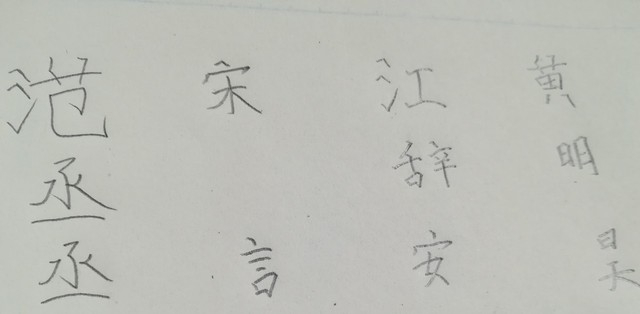 范丞丞
宋言
江辞安
黄明昊